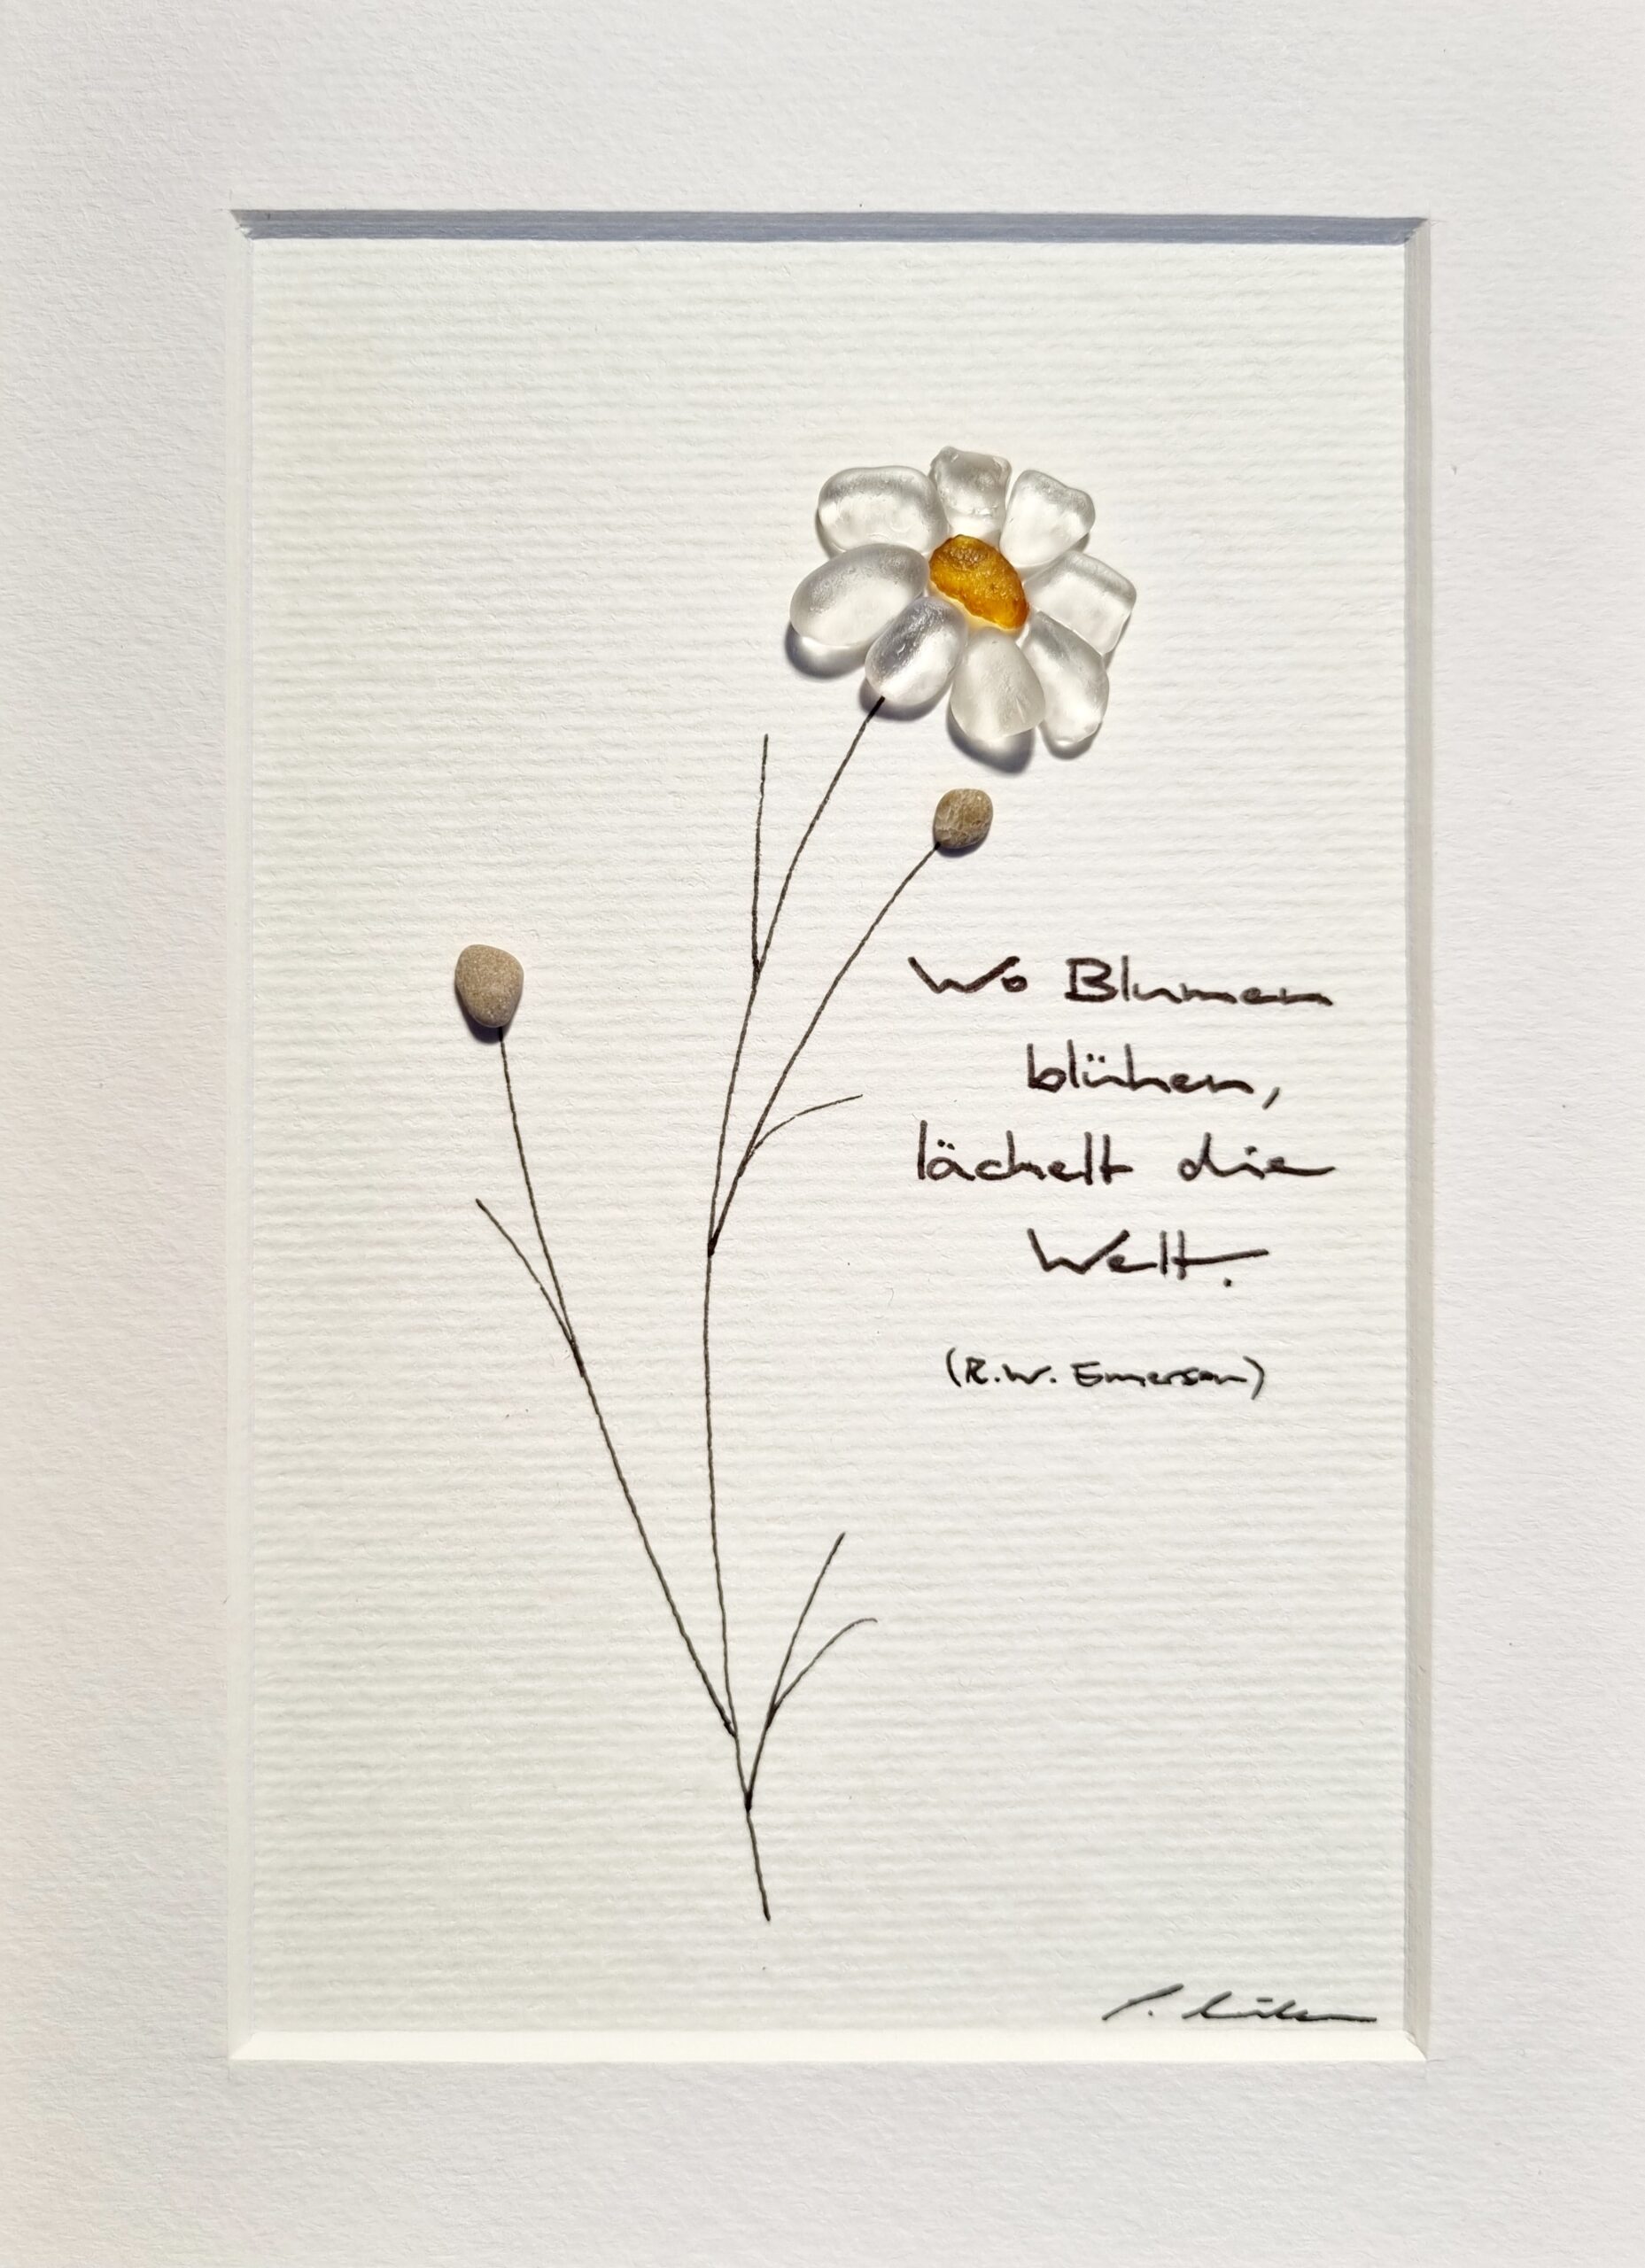 Wo Blumen
blühen,
lächelt die
Welt.
(R.W. Emerson)